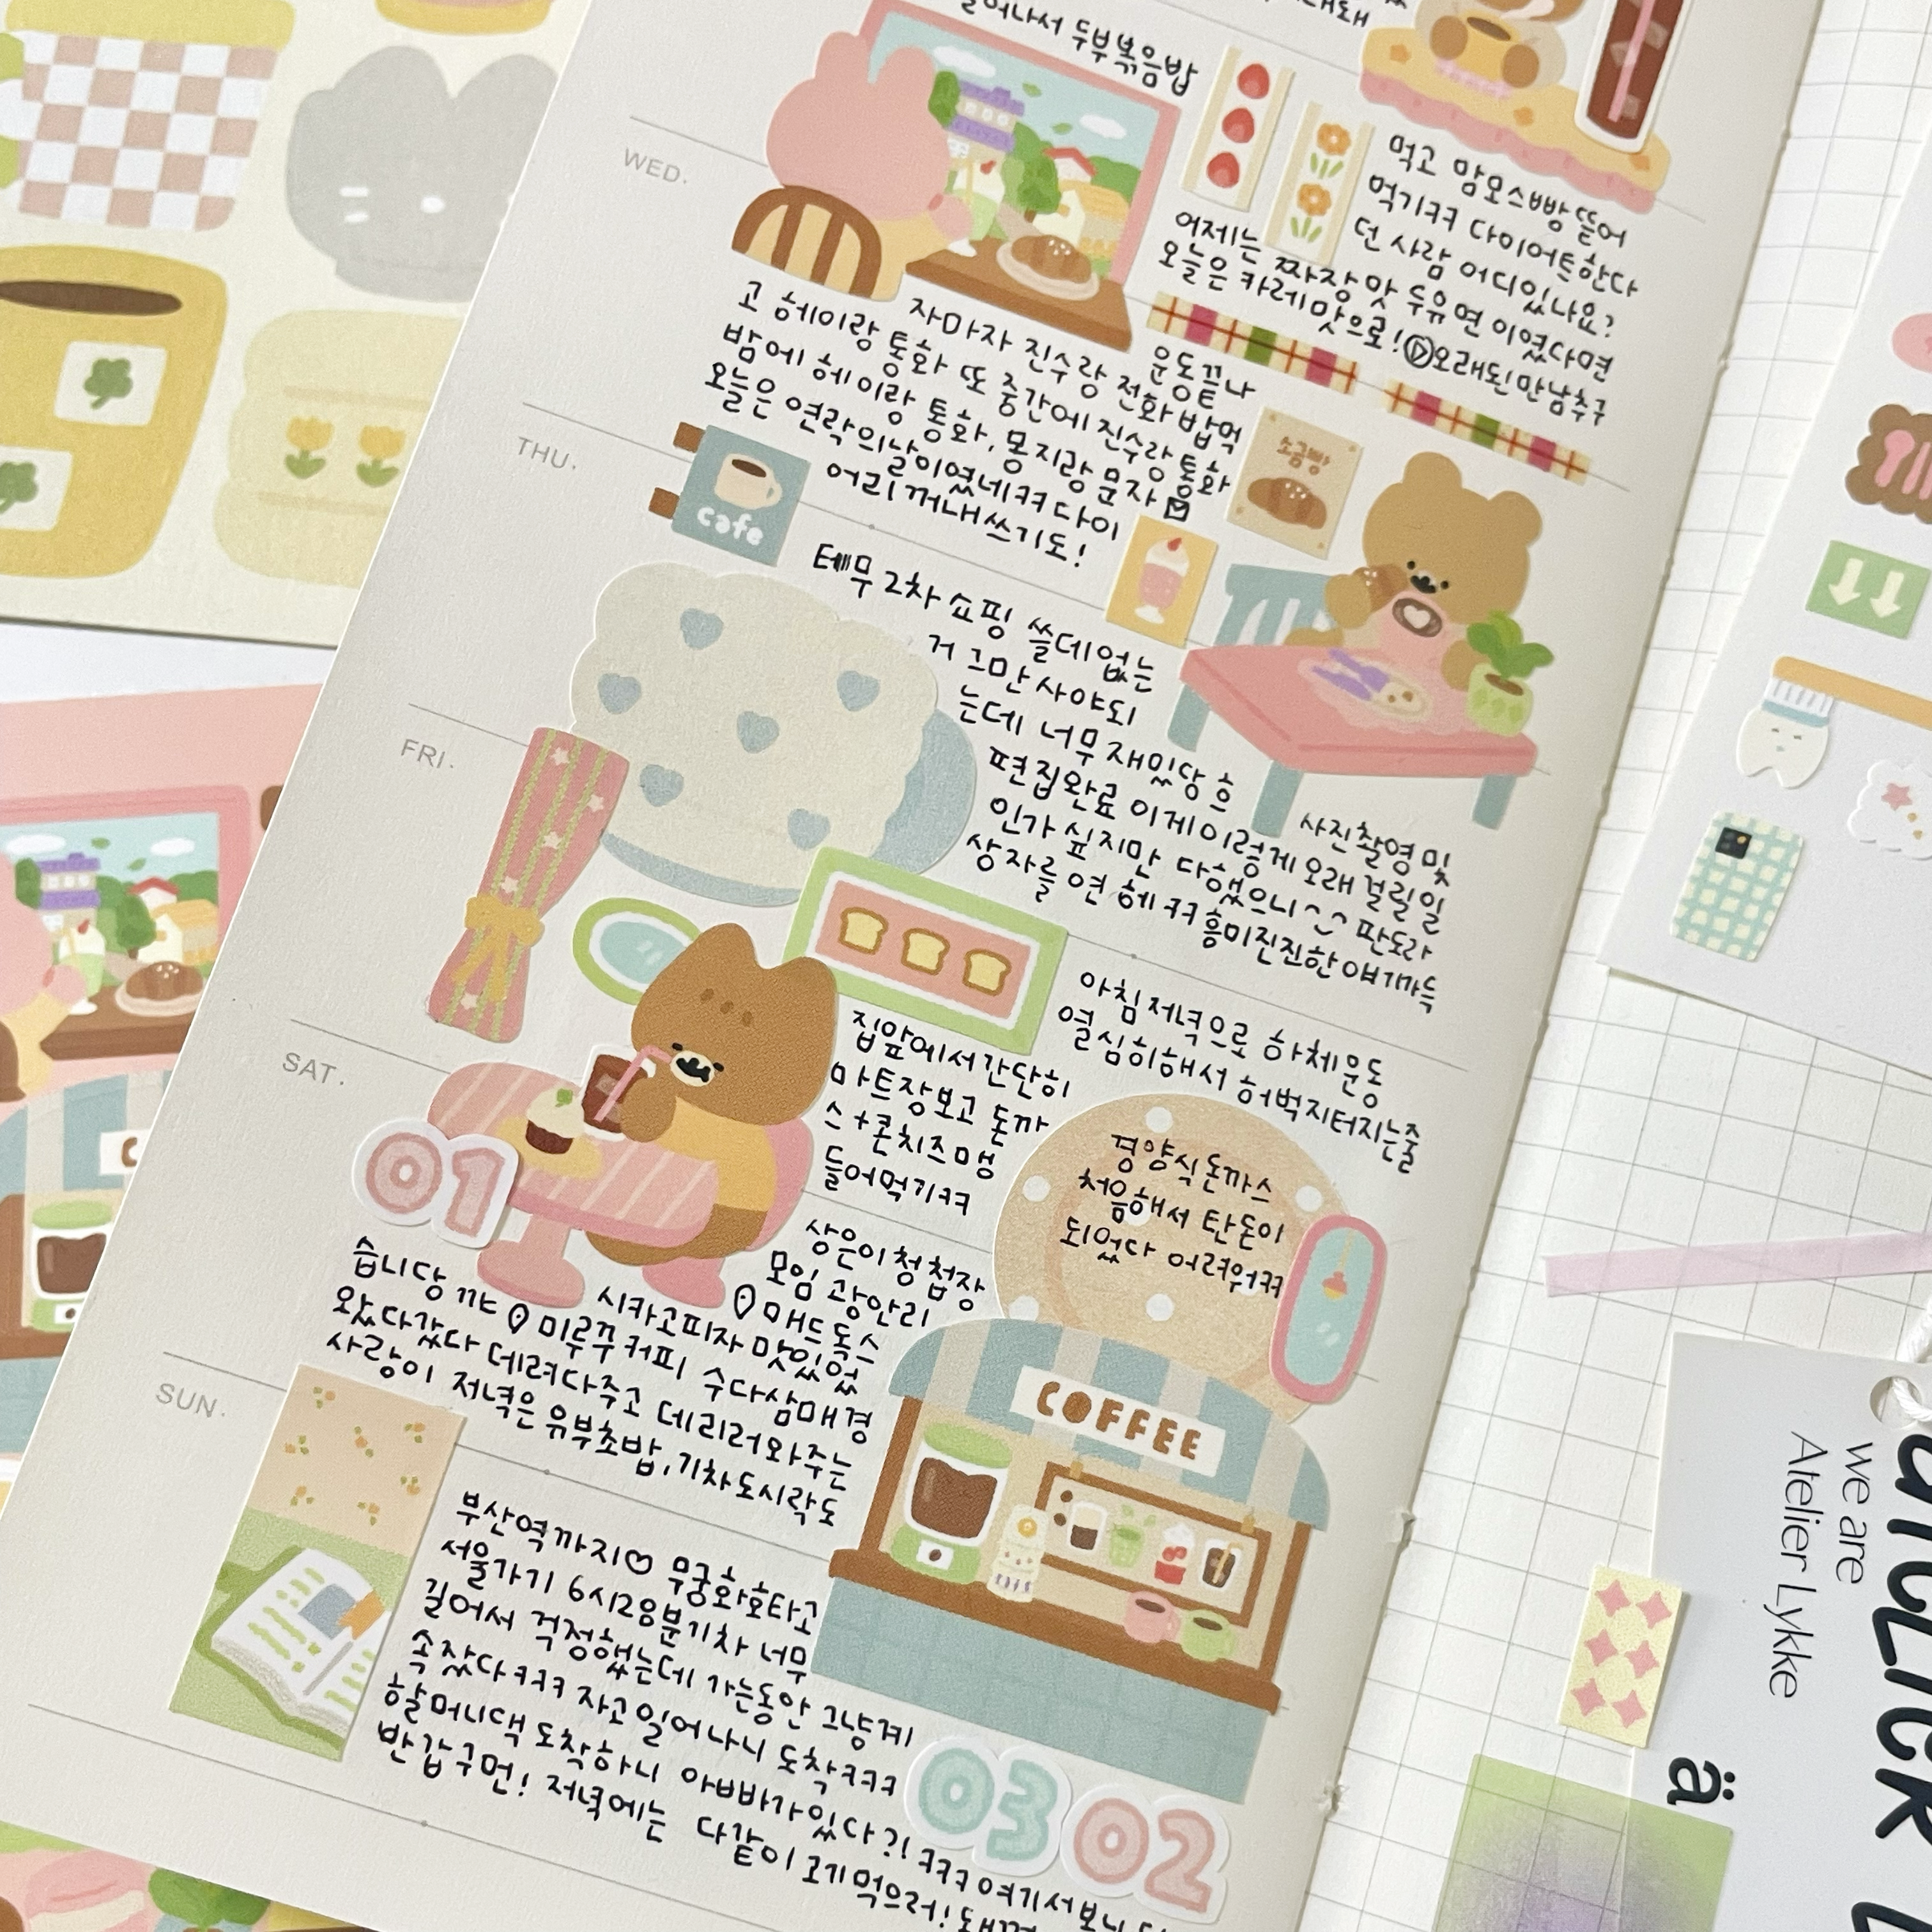 일어나서 두부볶음밥
먹고 맘모스빵 뜯어
먹기ㅋㅋ 다이어트한다
던 사람 어디있나요?
WED.
어제는 짜장맛 두유면 이였다면
오늘은 카레맛으로! 오래된만남추구
운동끝나
자마자 진수랑 전화 밥먹
고 헤이랑 통화 또 중간에 진수랑 통화
밤에 헤이랑 통화, 몽지랑 문자
오늘은 연락의날이였네ㅋㅋ 다이
어리 꺼내쓰기도!
THU.
cafe
소금빵
테무 2차 쇼핑 쓸데없는
거 그만 사야되
는데 너무 재밌당 흐
사진촬영 및
편집완료 이게이렇게 오래 걸릴일
인가 싶지만 다했으니^^ 판도라
상자를 연 헤ㅋㅋ 흥미진진한 얘기가득
FRI.
아침저녁으로 하체운동
열심히해서 허벅지터지는줄
집앞에서간단히
마트장보고 돈까
스+콘치즈 맹
들어먹기ㅋㅋ
경양식돈까스
처음해서 탄돈이
되었다 어려워ㅋㅋ
SAT.
01
상은이 청첩장
모임 광안리
매드독스
시카고피자 맛있었
습니당 끄트 미루꾸커피 수다삼매경
왔다갔다 데려다주고 데리러와주는
사랑이 저녁은 유부초밥, 기차도시락도
COFFEE
SUN.
부산역까지♡ 무궁화호타고
서울가기 6시28분기차 너무
길어서 걱정했는데 가는동안 그냥계
속 잤다ㅋㅋㅋ 자고일어나니 도착ㅋㅋㅋ
할머니댁 도착하니 아빠가있다?! ㅋㅋㅋ 여기서보니
반갑구먼! 저녁에는 다같이 고기먹으러!
03
02
we are
Atelier Lykke
ä